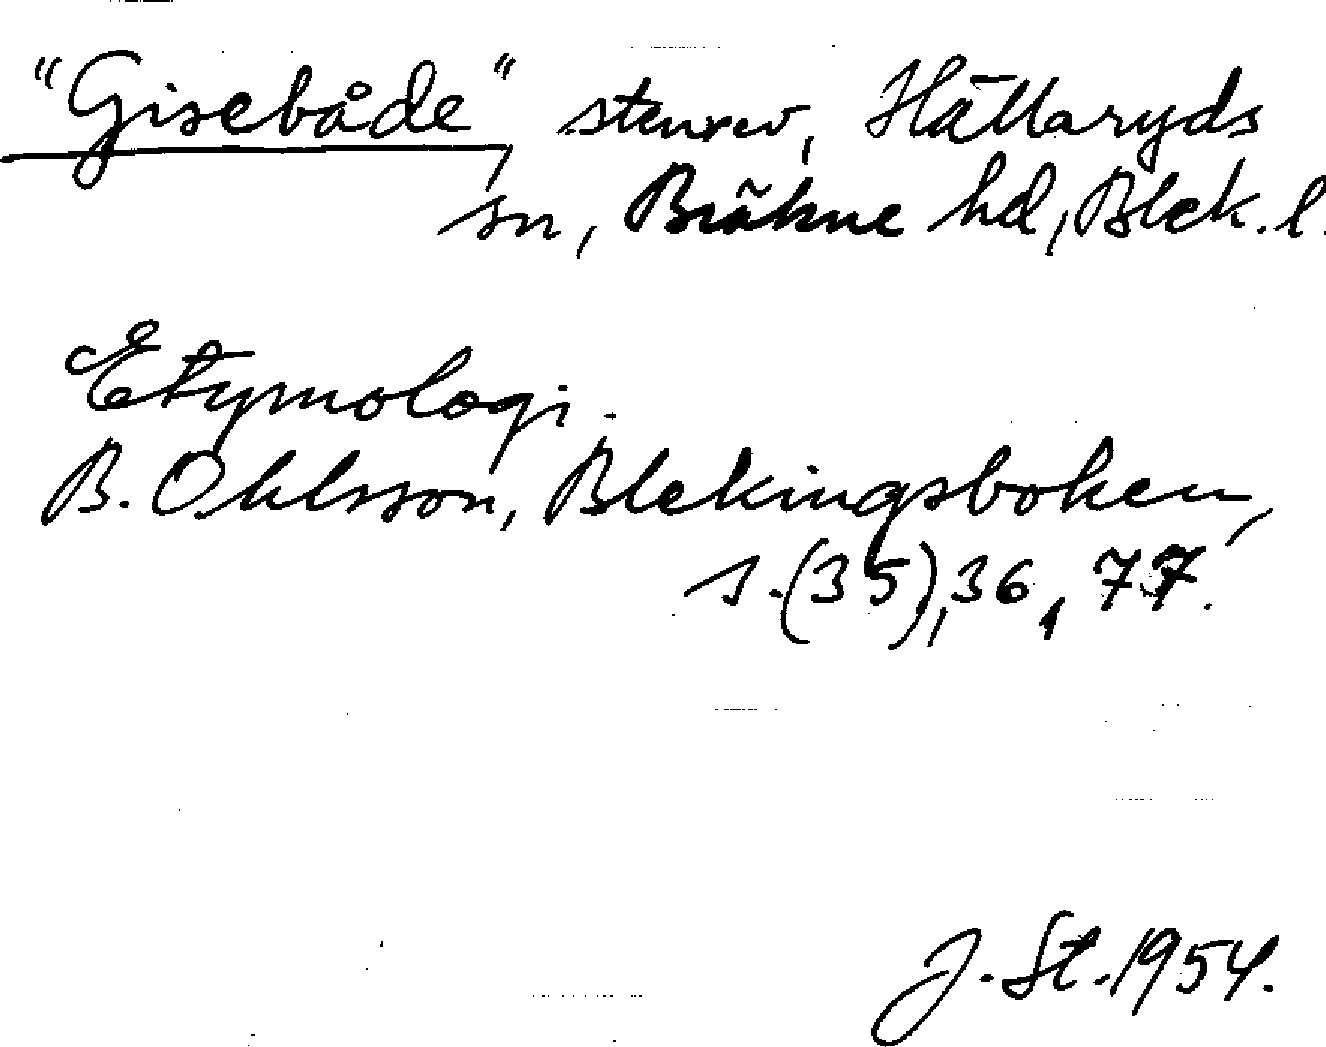 "Gisebåde", stenrev, Hällaryds
sn, Bräkne hd, Blek. l.
Etymologi.
B. Ohlsson, Blekingsboken,
s. (35), 36, 77.
J. St. 1954.